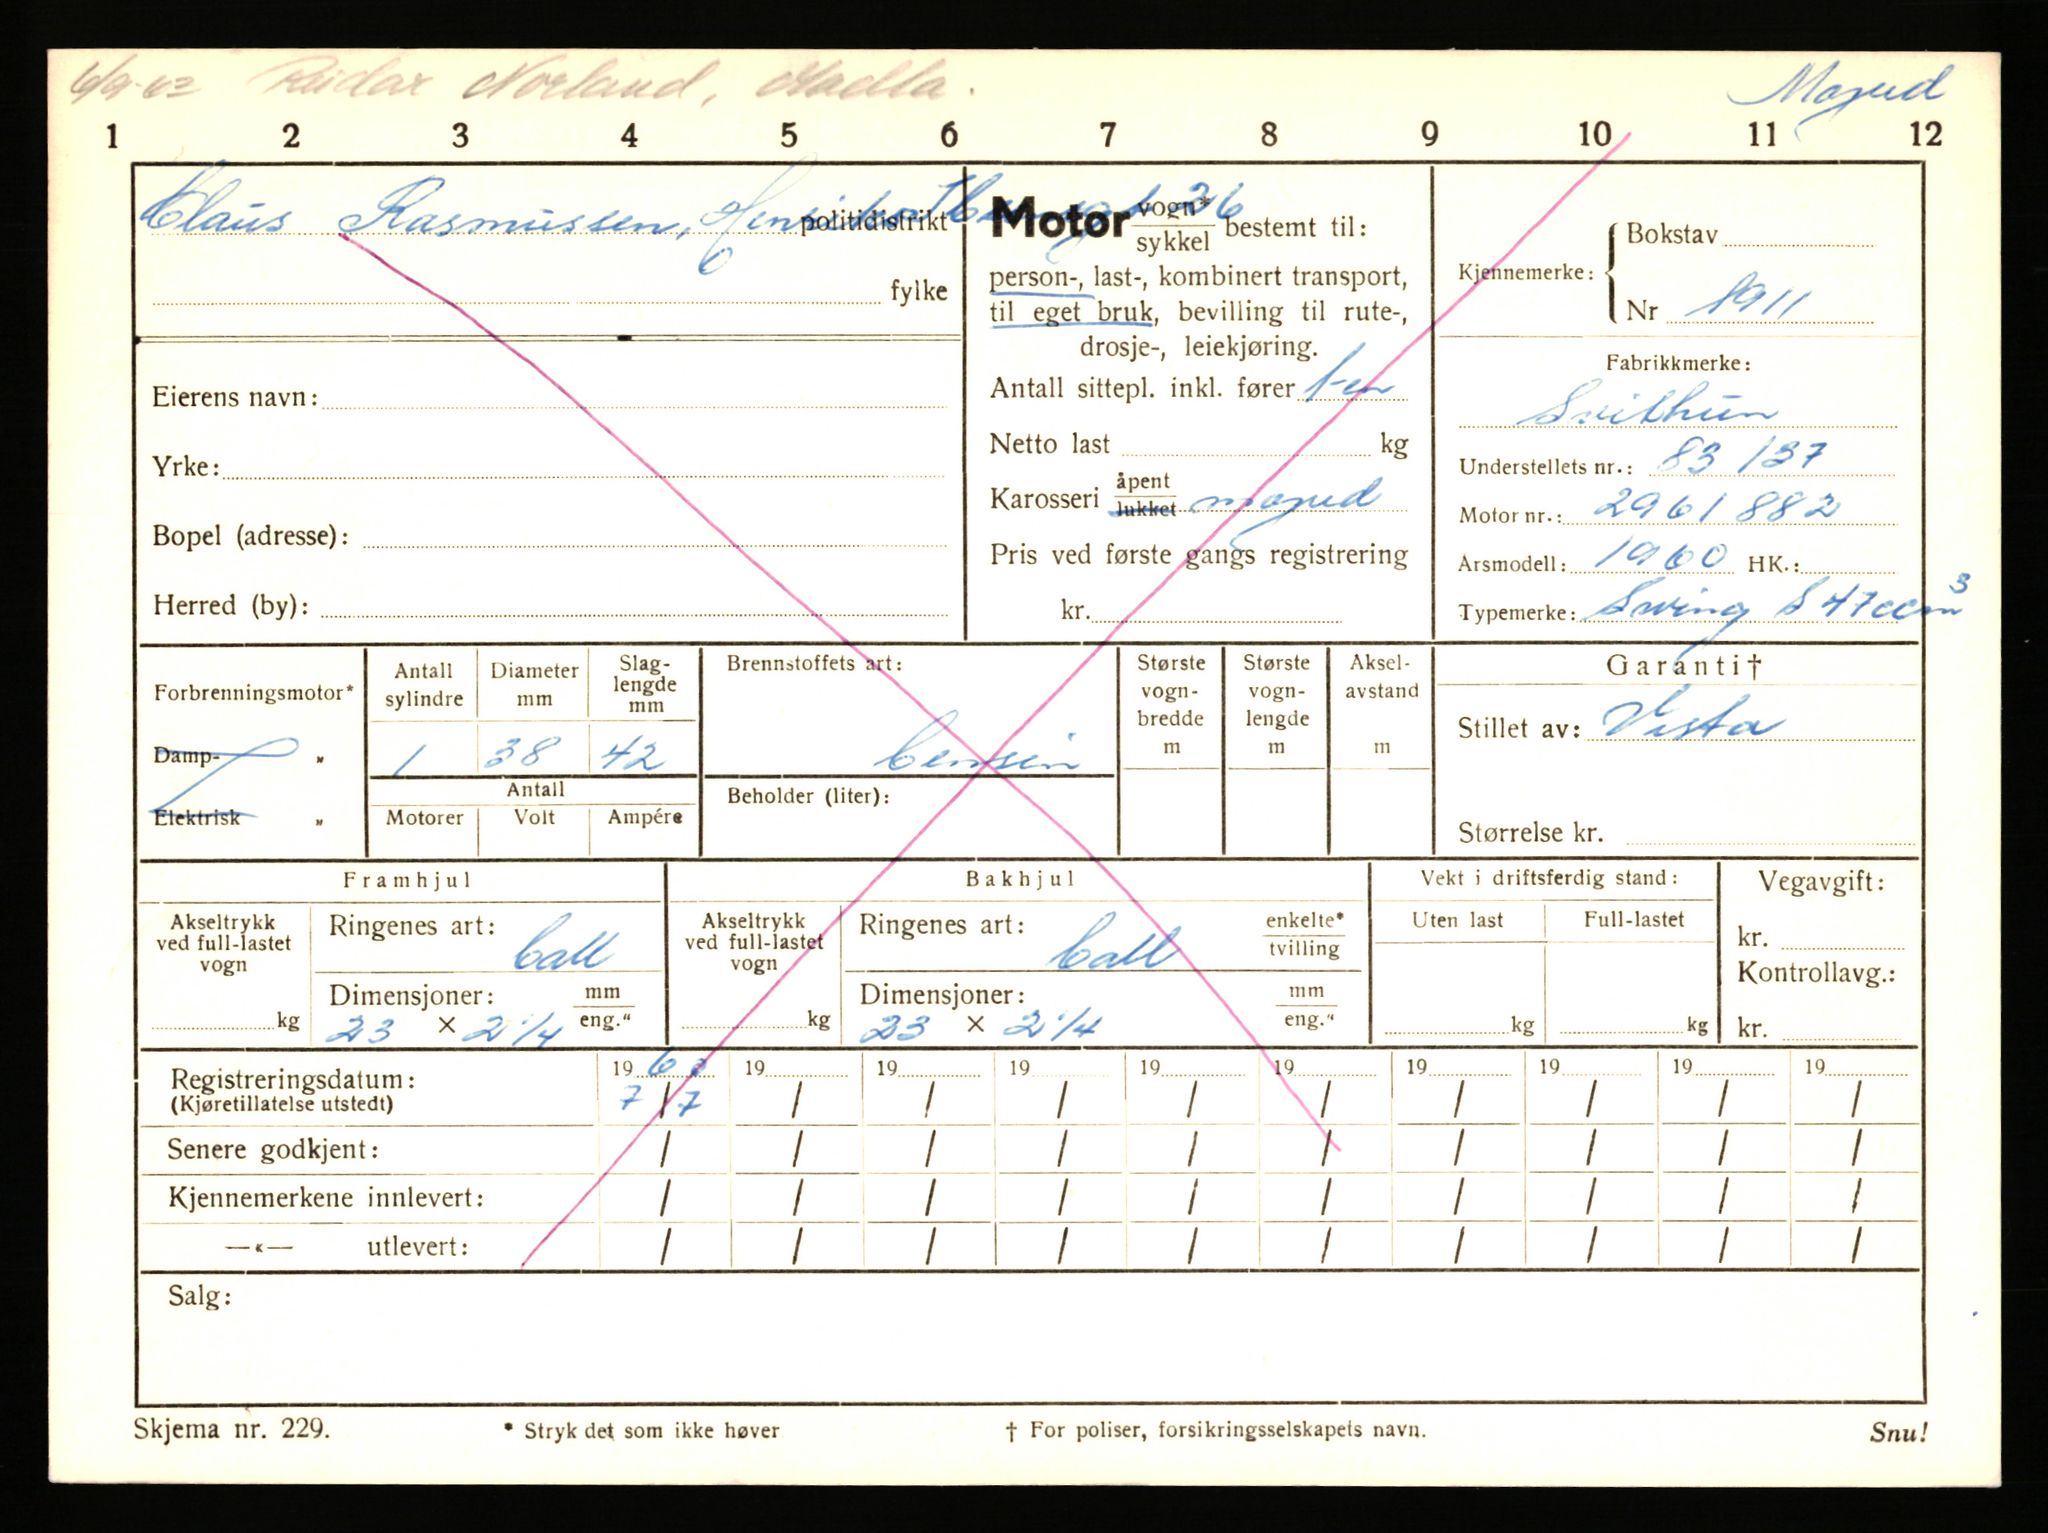 6/9-62 Reidar Norland, Madla.
Moped
1 2 3 4 5 6 7 8 9 10 11 12
Claus Rasmussen, 26
politidistrikt
fylke
Eierens navn:
Yrke:
Bopel (adresse):
Herred (by):
Motor vogn* sykkel bestemt til:
person-, last-, kombinert transport,
til eget bruk, bevilling til rute-,
drosje-, leiekjøring.
Antall sittepl. inkl. fører 1-en
Netto last kg
Karosseri åpent lukket moped
Pris ved første gangs registrering
kr.
Kjennemerke: Bokstav
Nr 1911
Fabrikkmerke:
Svithun
Understellets nr.: 83 137
Motor nr.: 2961882
Årsmodell: 1960 HK.:
Typemerke: Swing S 47 ccm³
Forbrenningsmotor*
Damp- „
Elektrisk „
Antall sylindre
Diameter mm
Slag- lengde mm
1 38 42
Antall
Motorer Volt Ampére
Brennstoffets art:
bensin
Beholder (liter):
Største vogn- bredde m
Største vogn- lengde m
Aksel- avstand m
Garanti†
Stillet av: Vesta
Størrelse kr.
Framhjul
Akseltrykk ved full-lastet vogn
kg
Ringenes art: ball
Dimensjoner: mm eng."
23 × 2 1/4
Bakhjul
Akseltrykk ved full-lastet vogn
kg
Ringenes art: ball enkelte* tvilling
Dimensjoner: mm eng."
23 × 2 1/4
Vekt i driftsferdig stand:
Uten last Full-lastet
kg kg
Vegavgift:
kr.
Kontrollavg.:
kr.
Registreringsdatum: 1960 19 19 19 19 19 19 19 19 19
(Kjøretillatelse utstedt) 7/7 / / / / / / / / /
Senere godkjent: / / / / / / / / / /
Kjennemerkene innlevert: / / / / / / / / / /
—«— utlevert: / / / / / / / / / /
Salg:
Skjema nr. 229. * Stryk det som ikke høver † For poliser, forsikringsselskapets navn. Snu!